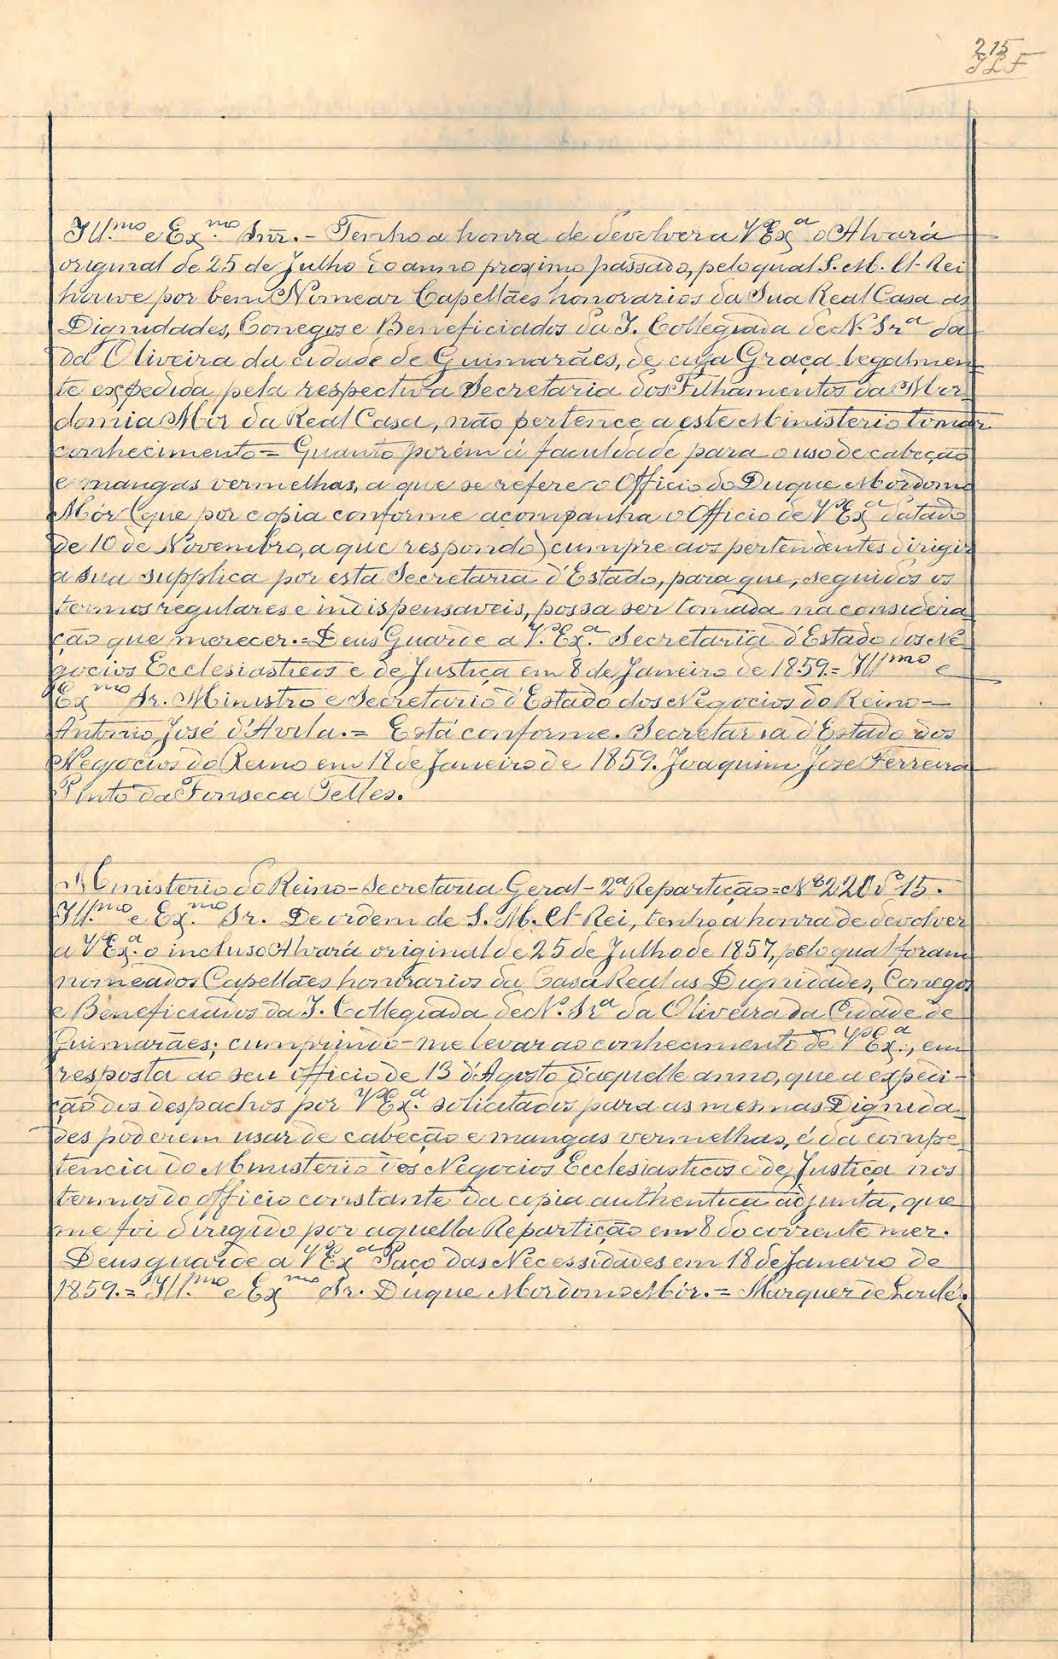 215
JLF
Ill.mo e Ex.mo Snr. - Tenho a honra de devolver a V Exa o Alvará
original de 25 de Julho do anno proximo passado, pelo qual S. M. El-Rei
houve por bem Nomear Capellães honorarios da Sua Real Casa as
Dignidades, Conegos e Beneficiados da I. Collegiada de N. Sra da
da Oliveira da cidade de Guimarães, de cuja Graça legalmen-
te expedida pela respectiva Secretaria dos Filhamentos da Mor-
domia Mór da Real Casa, não pertence a este Ministerio tomar
conhecimento = Quanto porém á faculdade para o uso de cabeção
e mangas vermelhas, a que se refere o Officio do Duque Mordomo
Mór (que por copia conforme acompanha o Officio de V Exa datado
de 10 de Novembro, a que respondo) cumpre aos pertendentes dirigir
a sua supplica por esta Secretaria d'Estado, para que, seguidos os
termos regulares e indispensaveis, possa ser tomada na considera
ção que merecer. = Deus Guarde a V. Ex.a Secretaria d'Estado dos Ne
gocios Ecclesiasticos e de Justiça em 8 de Janeiro de 1859. = Ill mo e
Ex mo Sr. Ministro e Secretario d'Estado dos Negocios do Reino -
Antonio José d'Avila. = Está conforme. Secretaria d'Estado dos
Negocios do Reino em 18 de Janeiro de 1859. Joaquim José Ferreira
Pinto da Fonseca Telles.
Ministerio do Reino - Secretaria Geral - 2a Repartição = No 220 15.
Ill.mo e Ex.mo Sr. De ordem de S. M. El-Rei, tenho a honra de devolver
a V Ex.a o incluso Alvará original de 25 de Julho de 1857, pelo qual foram
nomeados Capellães honorarios da Casa Real as Dignidades, Conegos
e Beneficiados da I. Collegiada de N. Sra da Oliveira da Cidade de
Guimarães; cumprindo-me levar ao conhecimento de V Ex.a, em
resposta ao seu officio de 13 d'Agosto d'aquelle anno, que a expedi-
ção dos despachos por V Ex.a solicitados para as mesmas Dignida-
des poderem usar de cabeção e mangas vermelhas, é da compe-
tencia do Ministerio dos Negocios Ecclesiasticos e de Justiça nos
termos do officio constante da copia authentica adjunta, que
me foi dirigido por aquella Repartição em 8 do corrente mez.
Deus guarde a V Exa Paço das Necessidades em 18 de Janeiro de
1859. = Ill.mo e Ex mo Sr. Duque Mordomo Mór. = Marquez de Loulé.